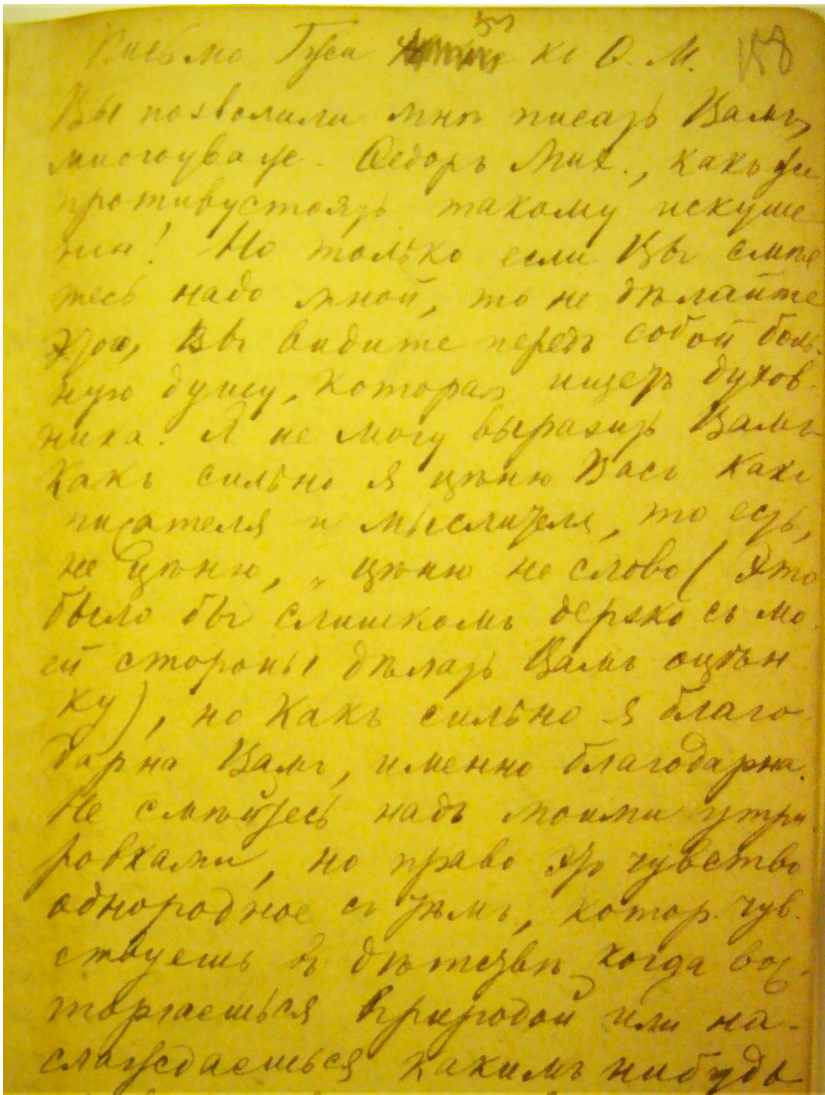 Письмо Гуси къ Ѳ. М. 158
Вы позволили мнѣ писать Вамъ,
многоуваж. Ѳедоръ Мих., какъ же
противустоять такому искуше-
нію! Но только если Вы смѣе
тесь надо мной, то не дѣлайте
этого, Вы видите передъ собой боль-
ную душу, которая ищетъ духов-
ника. Я не могу выразить Вамъ
какъ сильно я цѣню Васъ какъ
писателя и мыслителя, то есть,
не цѣню, „цѣню не слово (это
было бы слишкомъ дерзко съ мо-
ей стороны дѣлать Вамъ оцѣн
ку), но какъ сильно я благо-
дарна Вамъ, именно благодарна.
Не смѣйтесь надъ моими утри
ровками, но право это чувство
однородное съ тѣмъ, котор. чув-
ствуешь въ дѣтствѣ когда вос-
торгаешься природой или на-
слаждаешься какимъ нибудь